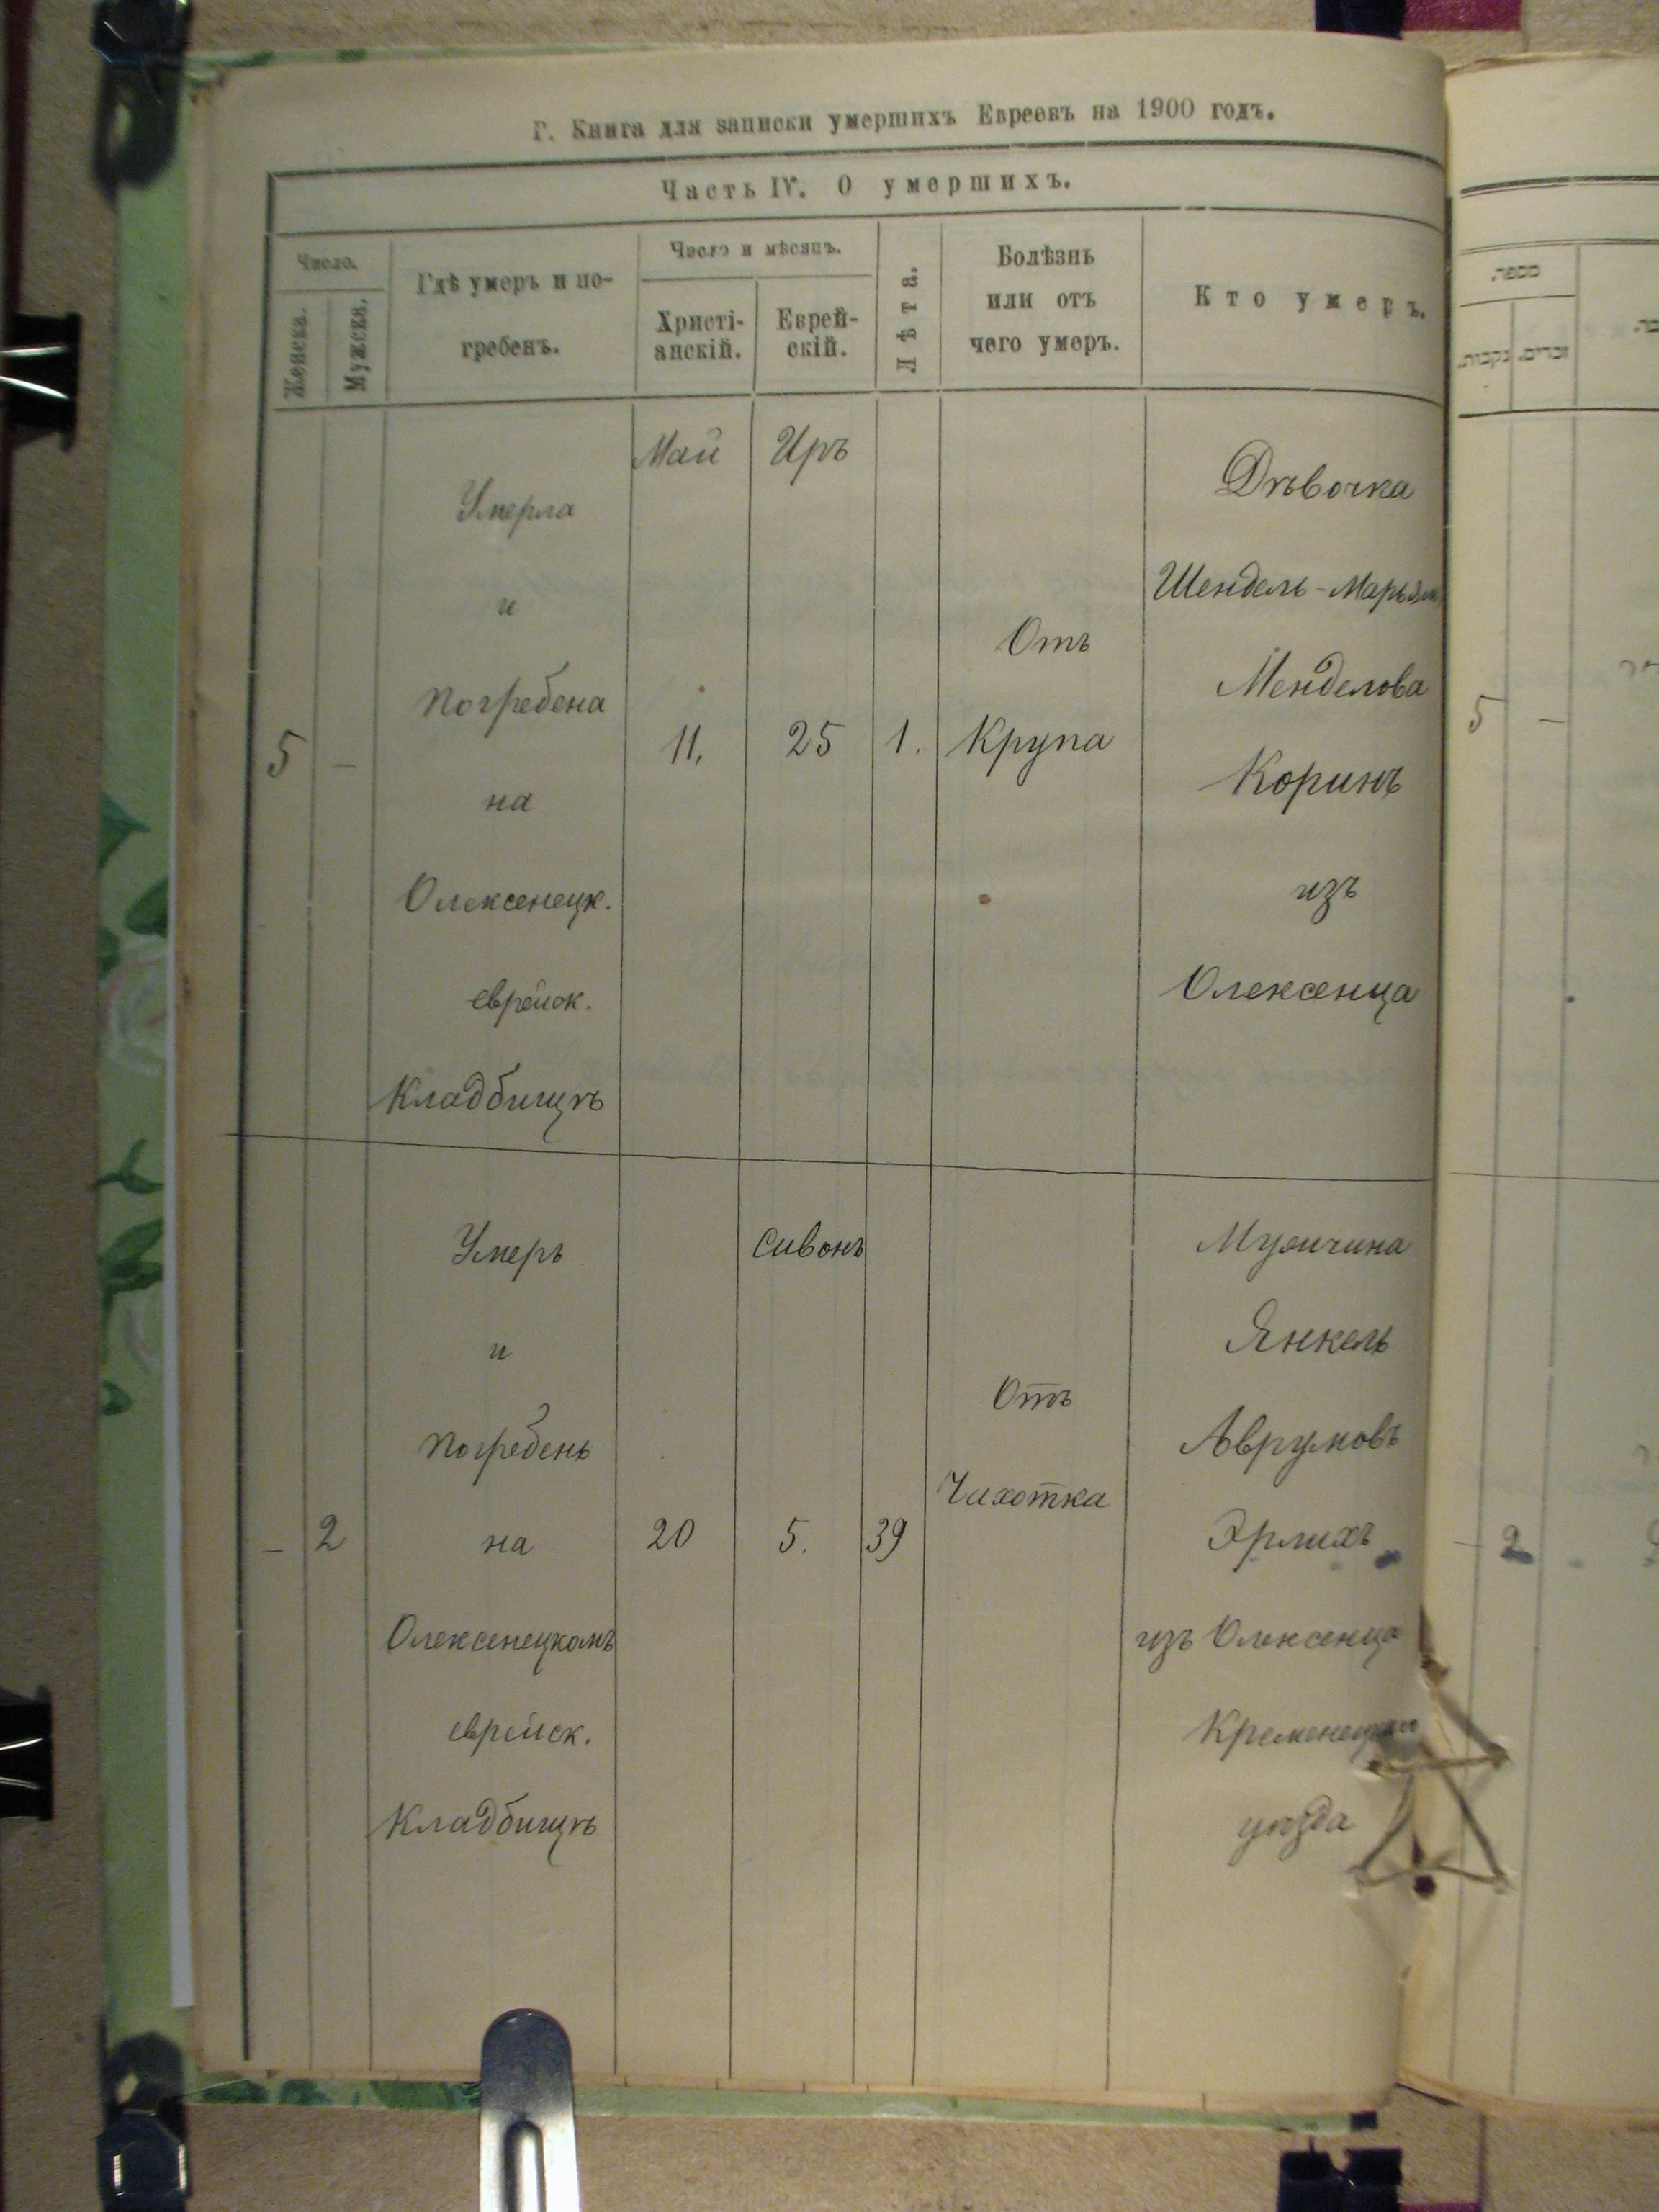 Г. Книга для записки умершихъ Евреевъ на 1900 годъ.
Часть IV. О умершихъ.
Число.
Женска.
Мужска.
Гдѣ умеръ и по-
гребенъ.
Число и мѣсяцъ.
Христі-
анскій.
Еврей-
скій.
Лѣта.
Болѣзнь
или отъ
чего умеръ.
Кто умеръ.
5
—
Умерла
и
Погребена
на
Олексенецк.
еврейск.
Кладбищѣ
Май
11.
Иръ
25
1.
Отъ
Крупа
Дѣвочка
Шендель-Марьям
Менделова
Коринъ
изъ
Олексенца
—
2
Умеръ
и
Погребенъ
на
Олексенецкомъ
еврейск.
Кладбищѣ
20
Сивонъ
5.
39
Отъ
Чахотка
Мужчина
Янкель
Аврумовъ
Эрлихъ
изъ Олексенца
Кременецкаго
уѣзда
מספר.
נקבות.
זכרים.
5
—
—
2